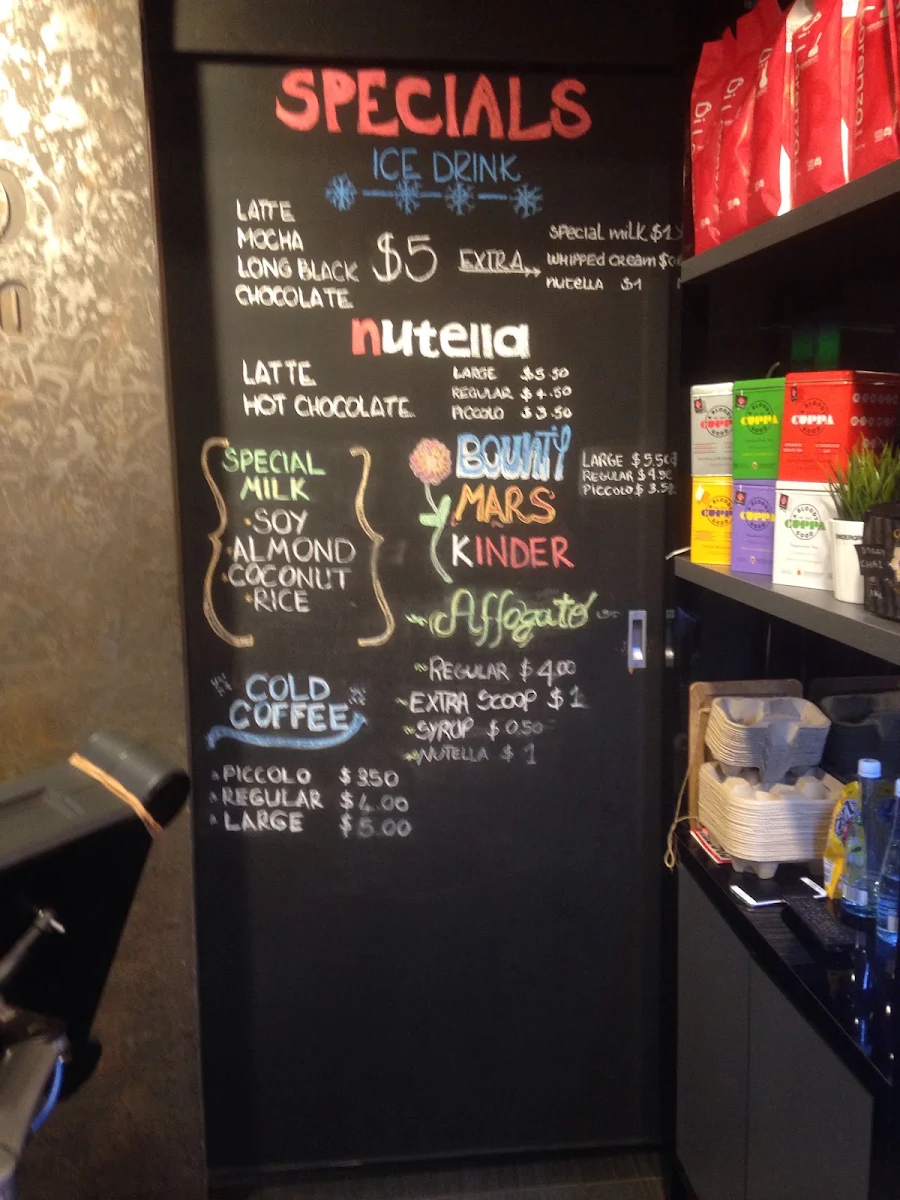 SPECIALS
ICE DRINK
LATTE
MOCHA
LONG BLACK
CHOCOLATE
$5
EXTRA
special milk $1
WHIPPED CREAM
nutella $1
nutella
LATTE
HOT CHOCOLATE
LARGE $5.50
REGULAR $4.50
PICCOLO $3.50
SPECIAL
MILK
SOY
ALMOND
COCONUT
RICE
BOUNTY
MARS
KINDER
LARGE $5.50
REGULAR $4.50
PICCOLO $3.50
Affogato
REGULAR $4.00
EXTRA SCOOP $1
SYRUP $0.50
NUTELLA $1
COLD
COFFEE
PICCOLO $3.50
REGULAR $4.00
LARGE $5.00
BLOODY
CUPPA
GOOD
BLOODY
CUPPA
GOOD
BLOODY
CUPPA
GOOD
CUPPA
CUPPA
BLOODY
CUPPA
GOOD